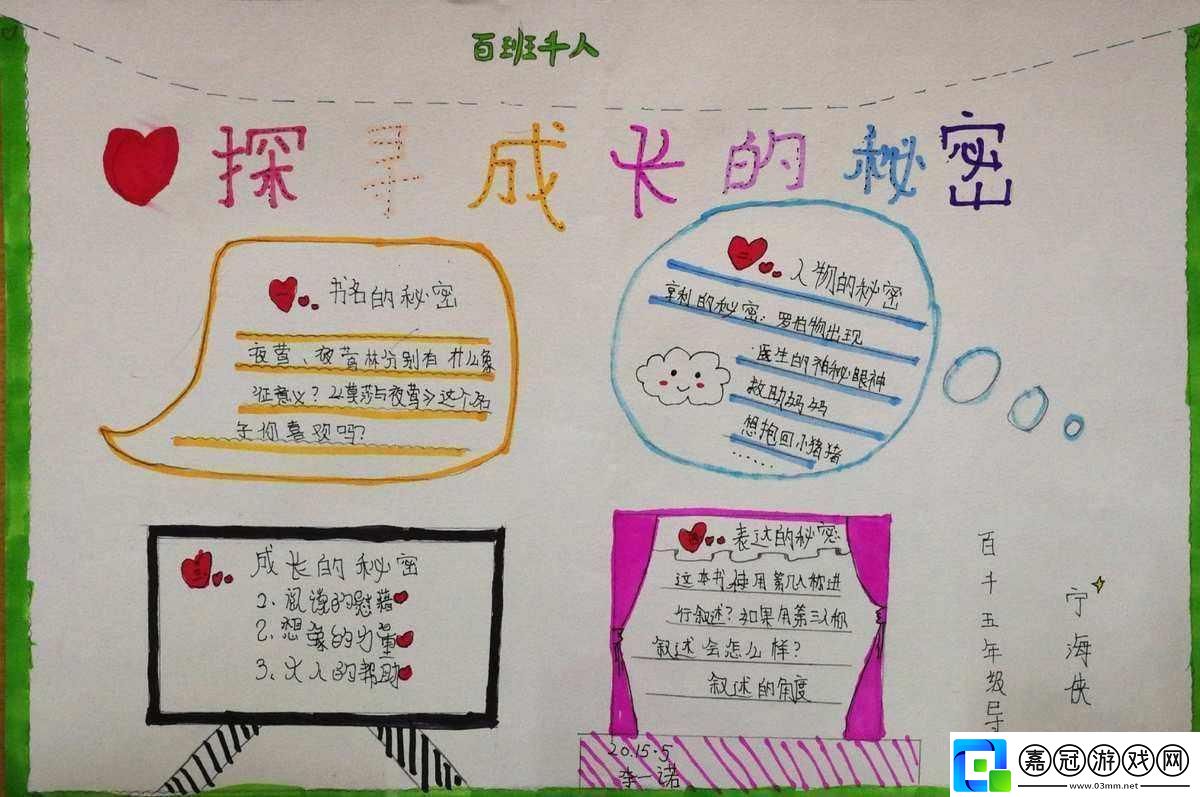 百班千人
探寻成长的秘密
一 书名的秘密
夜莺、夜莺林分别有什么象
征意义?《莫莎与夜莺》这个名
字你喜欢吗?
二 人物的秘密
亨利的秘密:罗伯物出现
医生的神秘眼神
救助妈妈
想抱回小猪猪
……
三 成长的秘密
2、阅读的慰藉
2、想象的力量
3、大人的帮助
四 表达的秘密
这本书使用第几人称进
行叙述?如果用第三人称
叙述会怎么样?
叙述的角度
2015·5
李一诺
百千五年级导
宁海侠
嘉冠游戏网
www.03mm.net